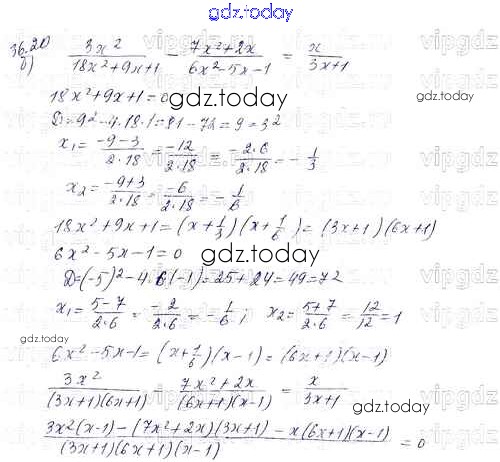 gdz.today
36.20
б) 3x²/(18x²+9x+1) - (7x²+2x)/(6x²-5x-1) = x/(3x+1)
18x²+9x+1=0
gdz.today
gdz.today
D=9²-4·18·1=81-72=9=3²
x₁=(-9-3)/(2·18)=-12/(2·18)=(-2·6)/(2·18)=-1/3
x₂=(-9+3)/(2·18)=-6/(2·18)=-1/6
18x²+9x+1=(x+1/3)(x+1/6)=(3x+1)(6x+1)
6x²-5x-1=0
gdz.today
D=(-5)²-4·6·(-1)=25+24=49=7²
x₁=(5-7)/(2·6)=-2/(2·6)=-1/6; x₂=(5+7)/(2·6)=12/12=1
gdz.today
gdz.today
6x²-5x-1=(x+1/6)(x-1)=(6x+1)(x-1)
3x²/((3x+1)(6x+1)) - (7x²+2x)/((6x+1)(x-1)) = x/(3x+1)
gdz.today
(3x²(x-1)-(7x²+2x)(3x+1)-x(6x+1)(x-1))/((3x+1)(6x+1)(x-1))=0